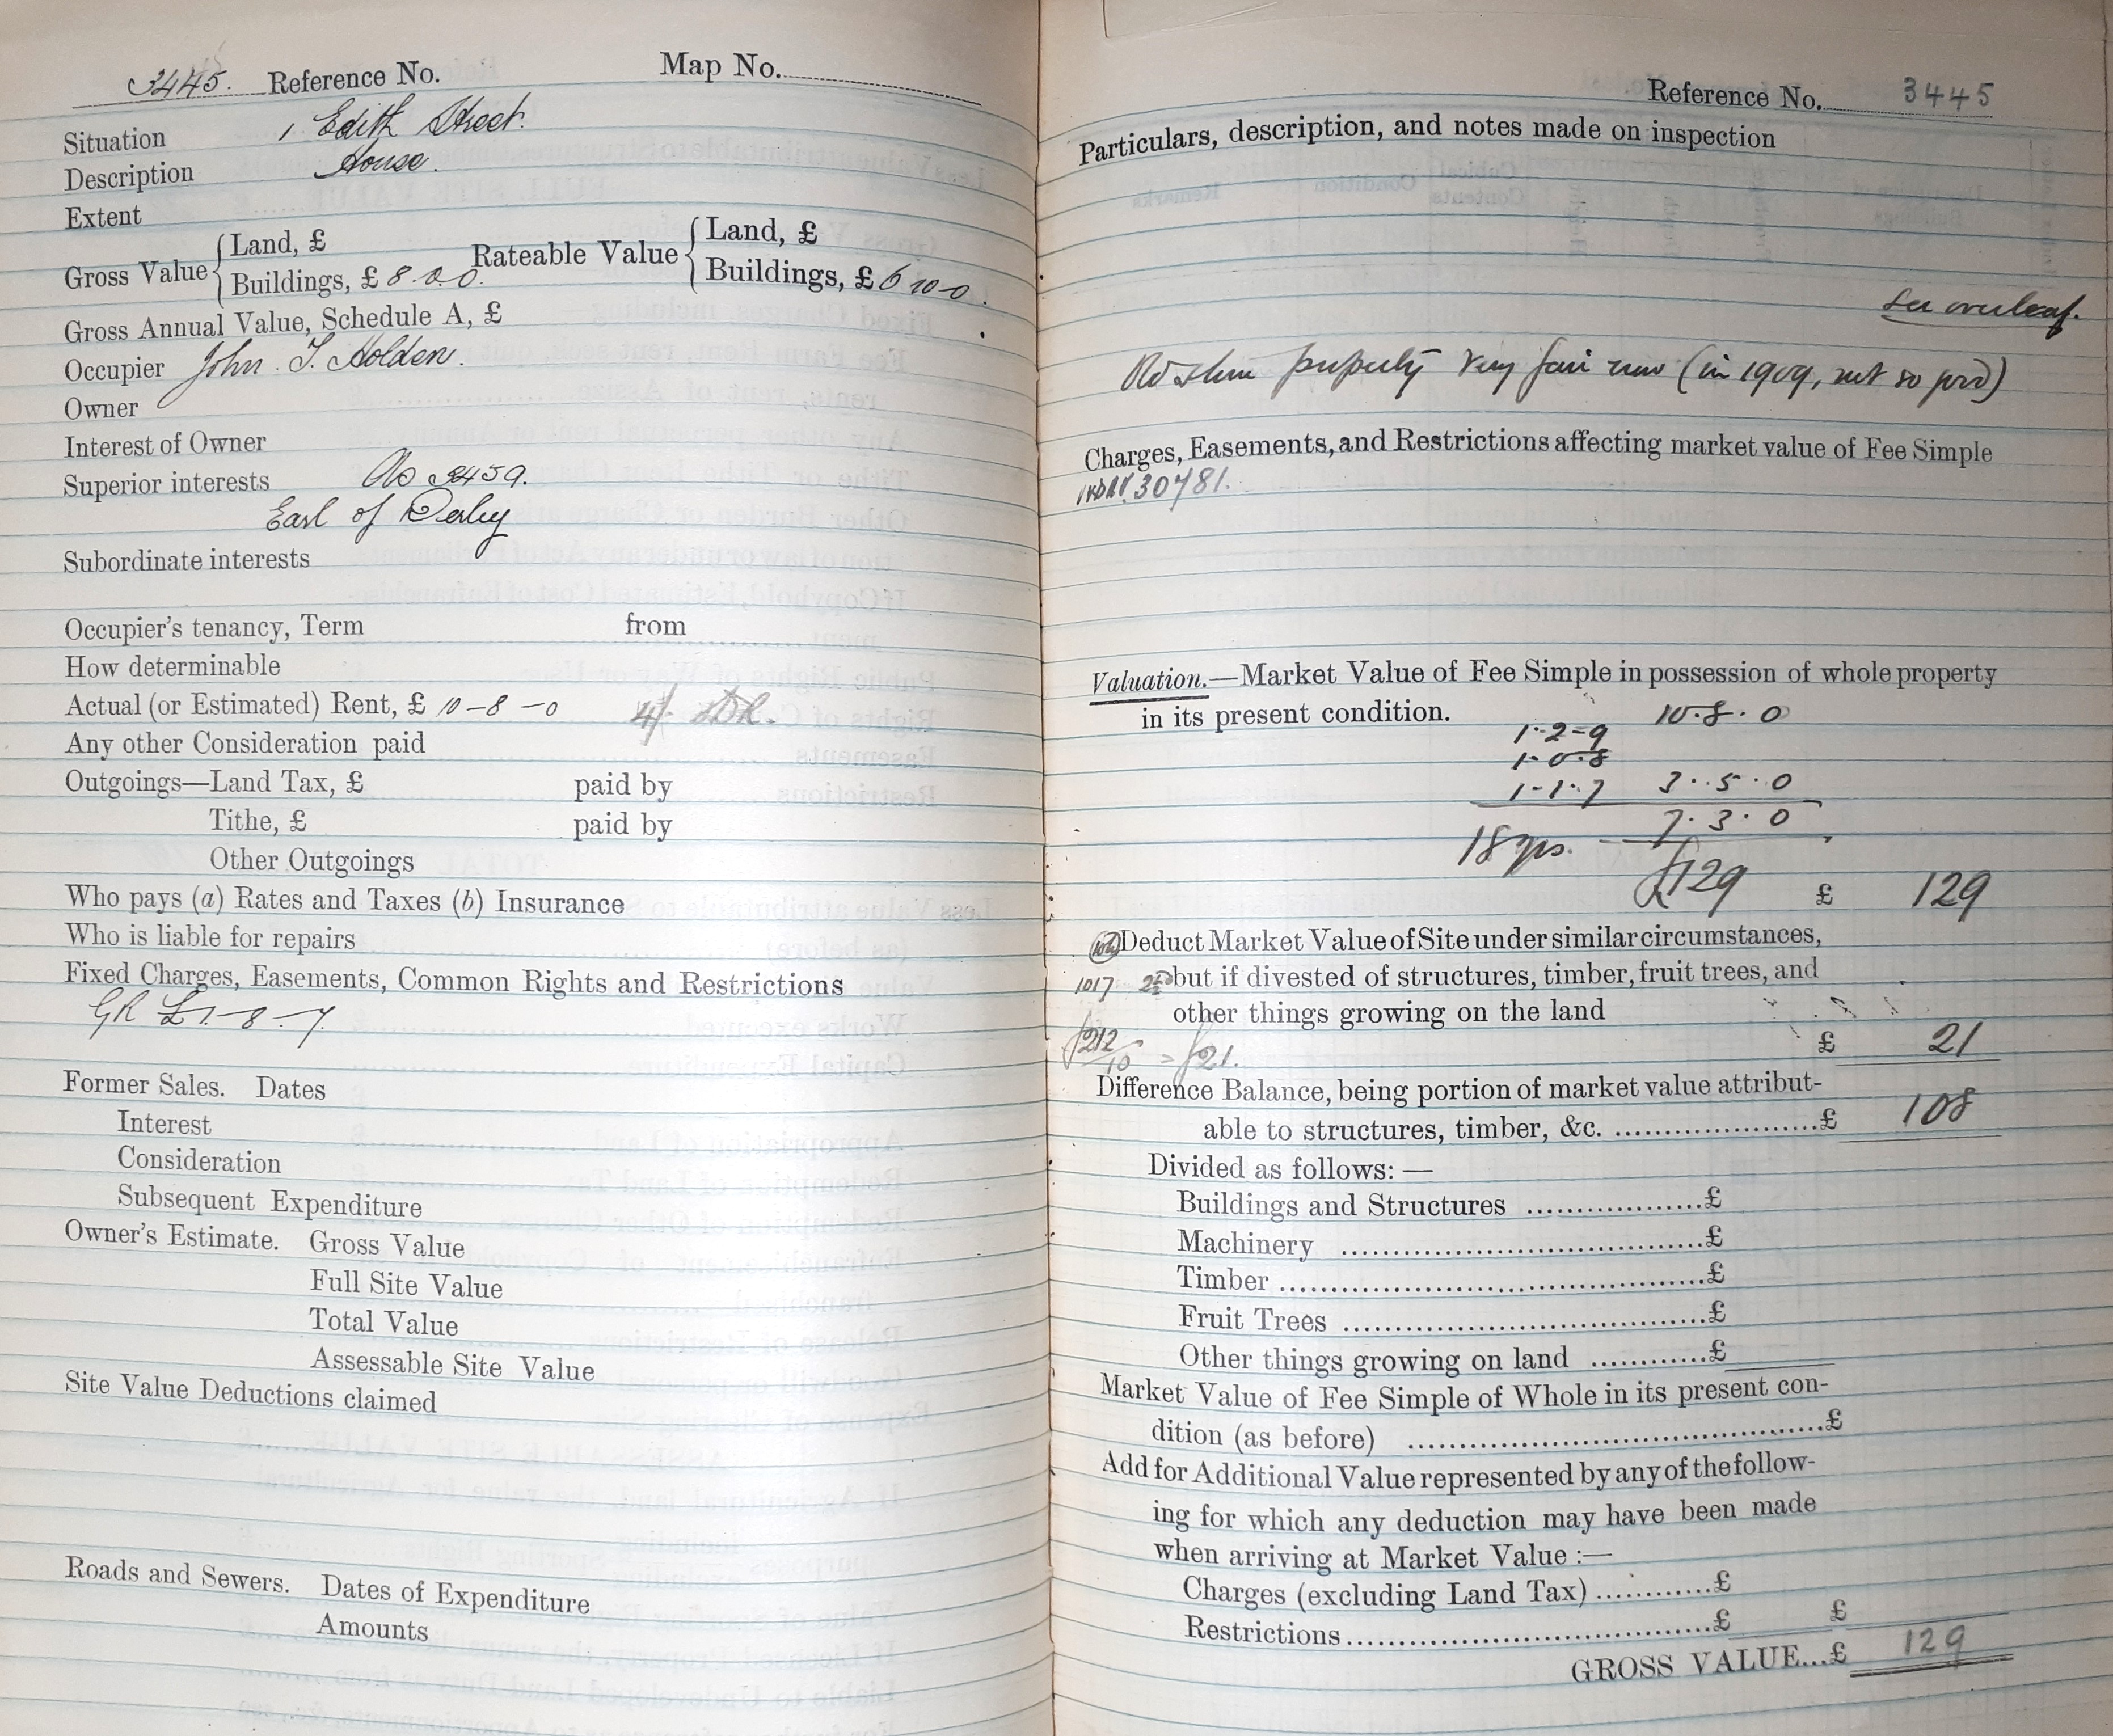 3445. Reference No. Map No.
Situation 1 Edith Street.
Description House.
Extent
Gross Value { Land, £ Rateable Value { Land, £
Buildings, £ 8-0-0. Buildings, £ 6 10-0.
Gross Annual Value, Schedule A, £
Occupier John. T. Holden.
Owner
Interest of Owner
Superior interests No 3459.
Earl of Derby
Subordinate interests
Occupier's tenancy, Term from
How determinable
Actual (or Estimated) Rent, £ 10-8-0 4/-
Any other Consideration paid
Outgoings—Land Tax, £ paid by
Tithe, £ paid by
Other Outgoings
Who pays (a) Rates and Taxes (b) Insurance
Who is liable for repairs
Fixed Charges, Easements, Common Rights and Restrictions
GR £1-8-7
Former Sales. Dates
Interest
Consideration
Subsequent Expenditure
Owner's Estimate. Gross Value
Full Site Value
Total Value
Assessable Site Value
Site Value Deductions claimed
Roads and Sewers. Dates of Expenditure
Amounts
Reference No. 3445
Particulars, description, and notes made on inspection
See overleaf.
Old property very fair now (in 1909, not so good)
Charges, Easements, and Restrictions affecting market value of Fee Simple
30781.
Valuation.—Market Value of Fee Simple in possession of whole property
in its present condition. 10.8.0
1-2-9
1-0-8
1-1-7 3.5.0
7.3.0
18 yrs.
£129 £ 129
Deduct Market Value of Site under similar circumstances,
1017 but if divested of structures, timber, fruit trees, and
other things growing on the land
£212/10 = £21. £ 21
Difference Balance, being portion of market value attribut-
able to structures, timber, &c. ....................£ 108
Divided as follows: —
Buildings and Structures ..................£
Machinery ....................................£
Timber ..........................................£
Fruit Trees ....................................£
Other things growing on land ............£
Market Value of Fee Simple of Whole in its present con-
dition (as before) ..........................................£
Add for Additional Value represented by any of the follow-
ing for which any deduction may have been made
when arriving at Market Value :—
Charges (excluding Land Tax) ............£
Restrictions ......................................£ £
GROSS VALUE...£ 129